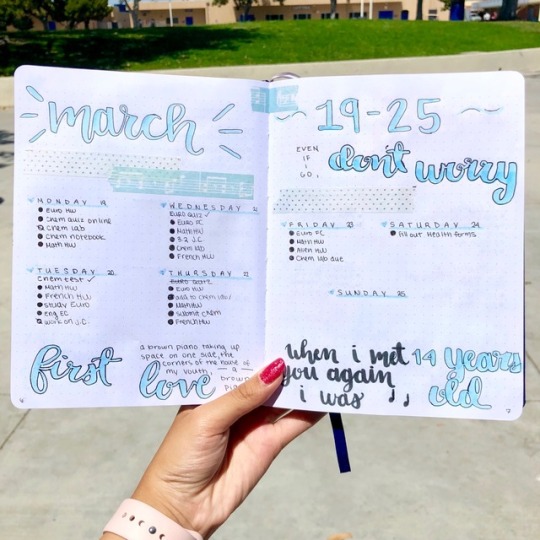 march
MONDAY 19
Euro HW
chem quiz online
chem lab
chem notebook
Math HW
TUESDAY 20
Chem test ✓
Math HW
French HW
study Euro
eng EC
work on J.C.
WEDNESDAY 21
Euro quiz ✓
Euro EC
Math HW
3-2 J.C.
Chem lab
French HW
THURSDAY 22
Euro HW
add to chem lab
Math HW
submit chem
French HW
first
love
a brown piano taking up
space on one side, the
corners of the home of
my youth,
a
brown
19-25
EVEN
IF
I
GO,
don't worry
FRIDAY 23
Euro EC
Math HW
Chem lab due
SATURDAY 24
fill out health forms
SUNDAY 25
when i met
you again
i was
14 years
old